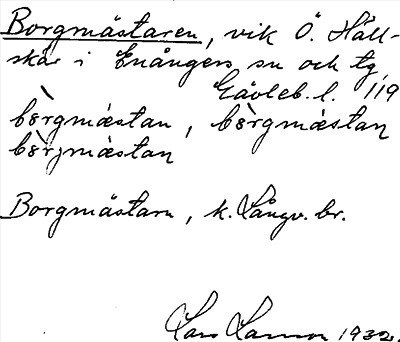 Borgmästaren, vik Ö. Häll-
skär i Enångers sn och tg,
Gävleb. l. 119
bòrgmástan, bòrgmǽstan
bòrgmástan
Borgmästarn, k. Långv. br.
Lars 1932.